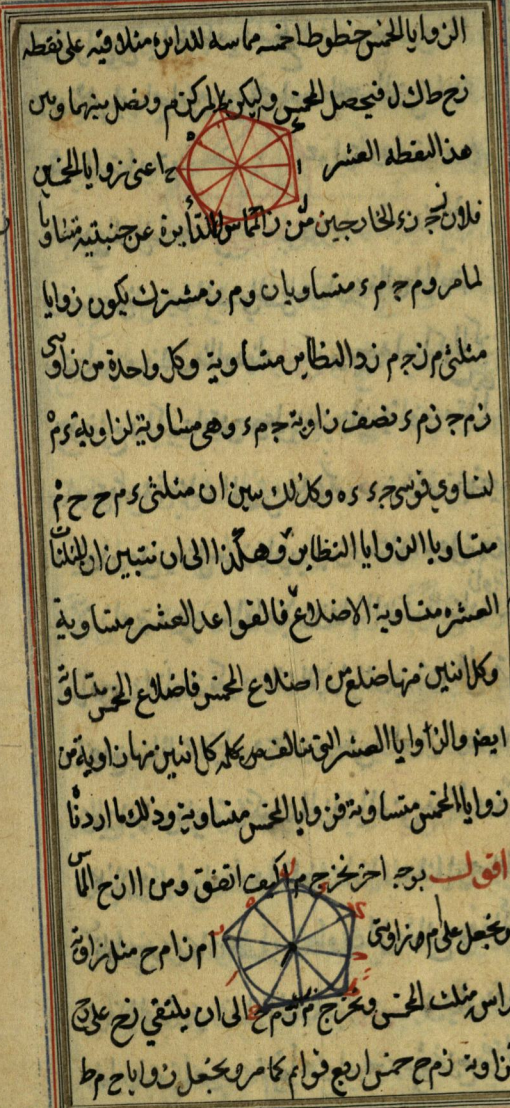 الزوايا الخمس خطوطا خمسه مماسه للدايره متلاقيه على نقطه
زح ط ك ل فيحصل المخمس وليكن المركز م ونصل بينهما وبين
هذه النقطه العشر اعنى زوايا المخمسين
فلان الخارجين من ز المماس للدايرة عن جنبتيه متساويا
لما مر و م ج م ء متساويان و م ز مشترك يكون زوايا
مثلثى م ز ج م ز د النظاير متساوية وكل واحدة من زاويتى
ز م ج ز م ء نصف زاوية ج م ء وهى مساوية لزاوية ء م ه
لتساوى قوسى ج ء ء ه وكذلك نبين ان مثلثى ء م ح ح م ه
متساويا الزوايا النظاير وهكذا الى ان نتبين ان المثلثات
العشره متساوية الاضلاع فالقواعد العشر متساوية
وكل اثنين منها ضلع من اضلاع المخمس فاضلاع المخمس متساوية
ايضا والزوايا العشر التى كل اثنين منها زاوية من
زوايا المخمس متساوية فزوايا المخمس متساوية وذلك ما اردنا
اقول بوجه اخر نخرج م ا كيف اتفق ومن ا ا ز ح المماس
ونجعل على ا م زاويتى ا م ز ا م ح مثل زاوية
راس مثلث المخمس ونخرج الى ان يلتقى ز ح على ح
فزاوية ز م ح خمس اربع قوايم كما مر ونجعل زوايا ح م ط